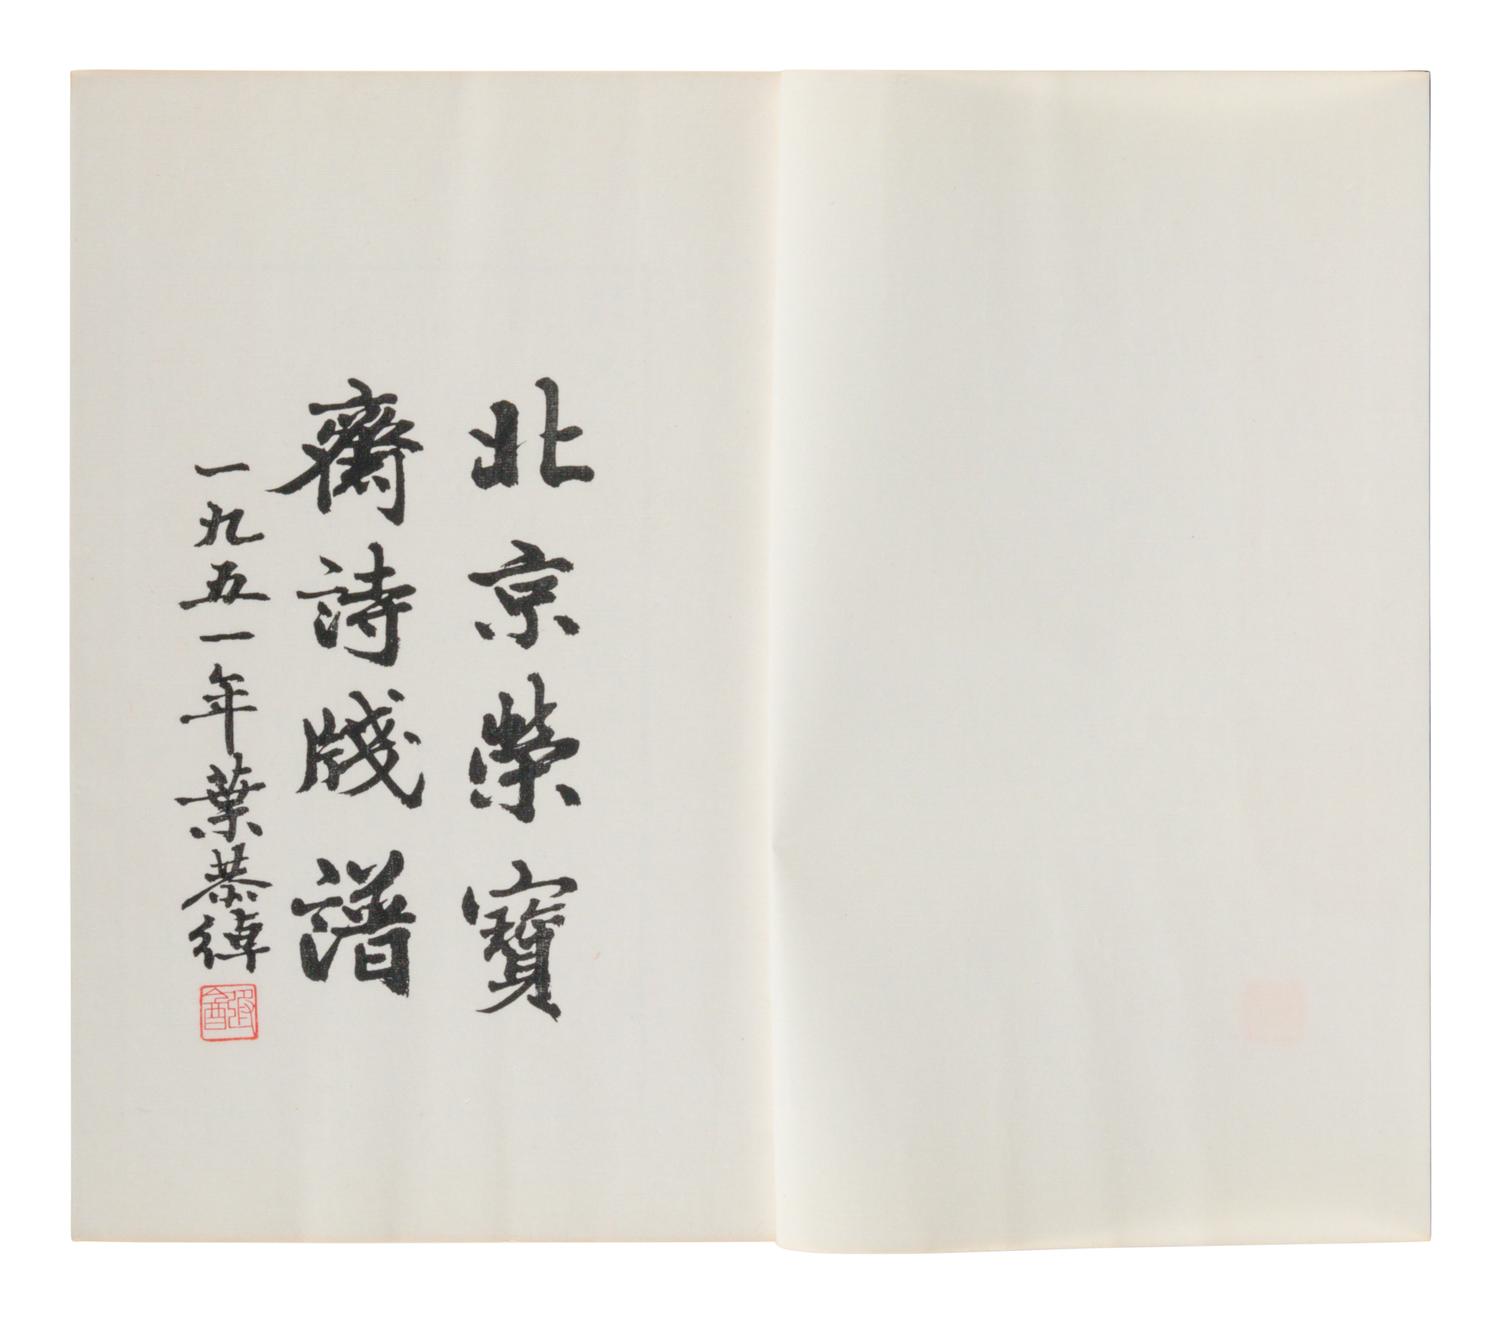 北京榮寶
齋詩牋譜
一九五一年葉恭綽
遐翁